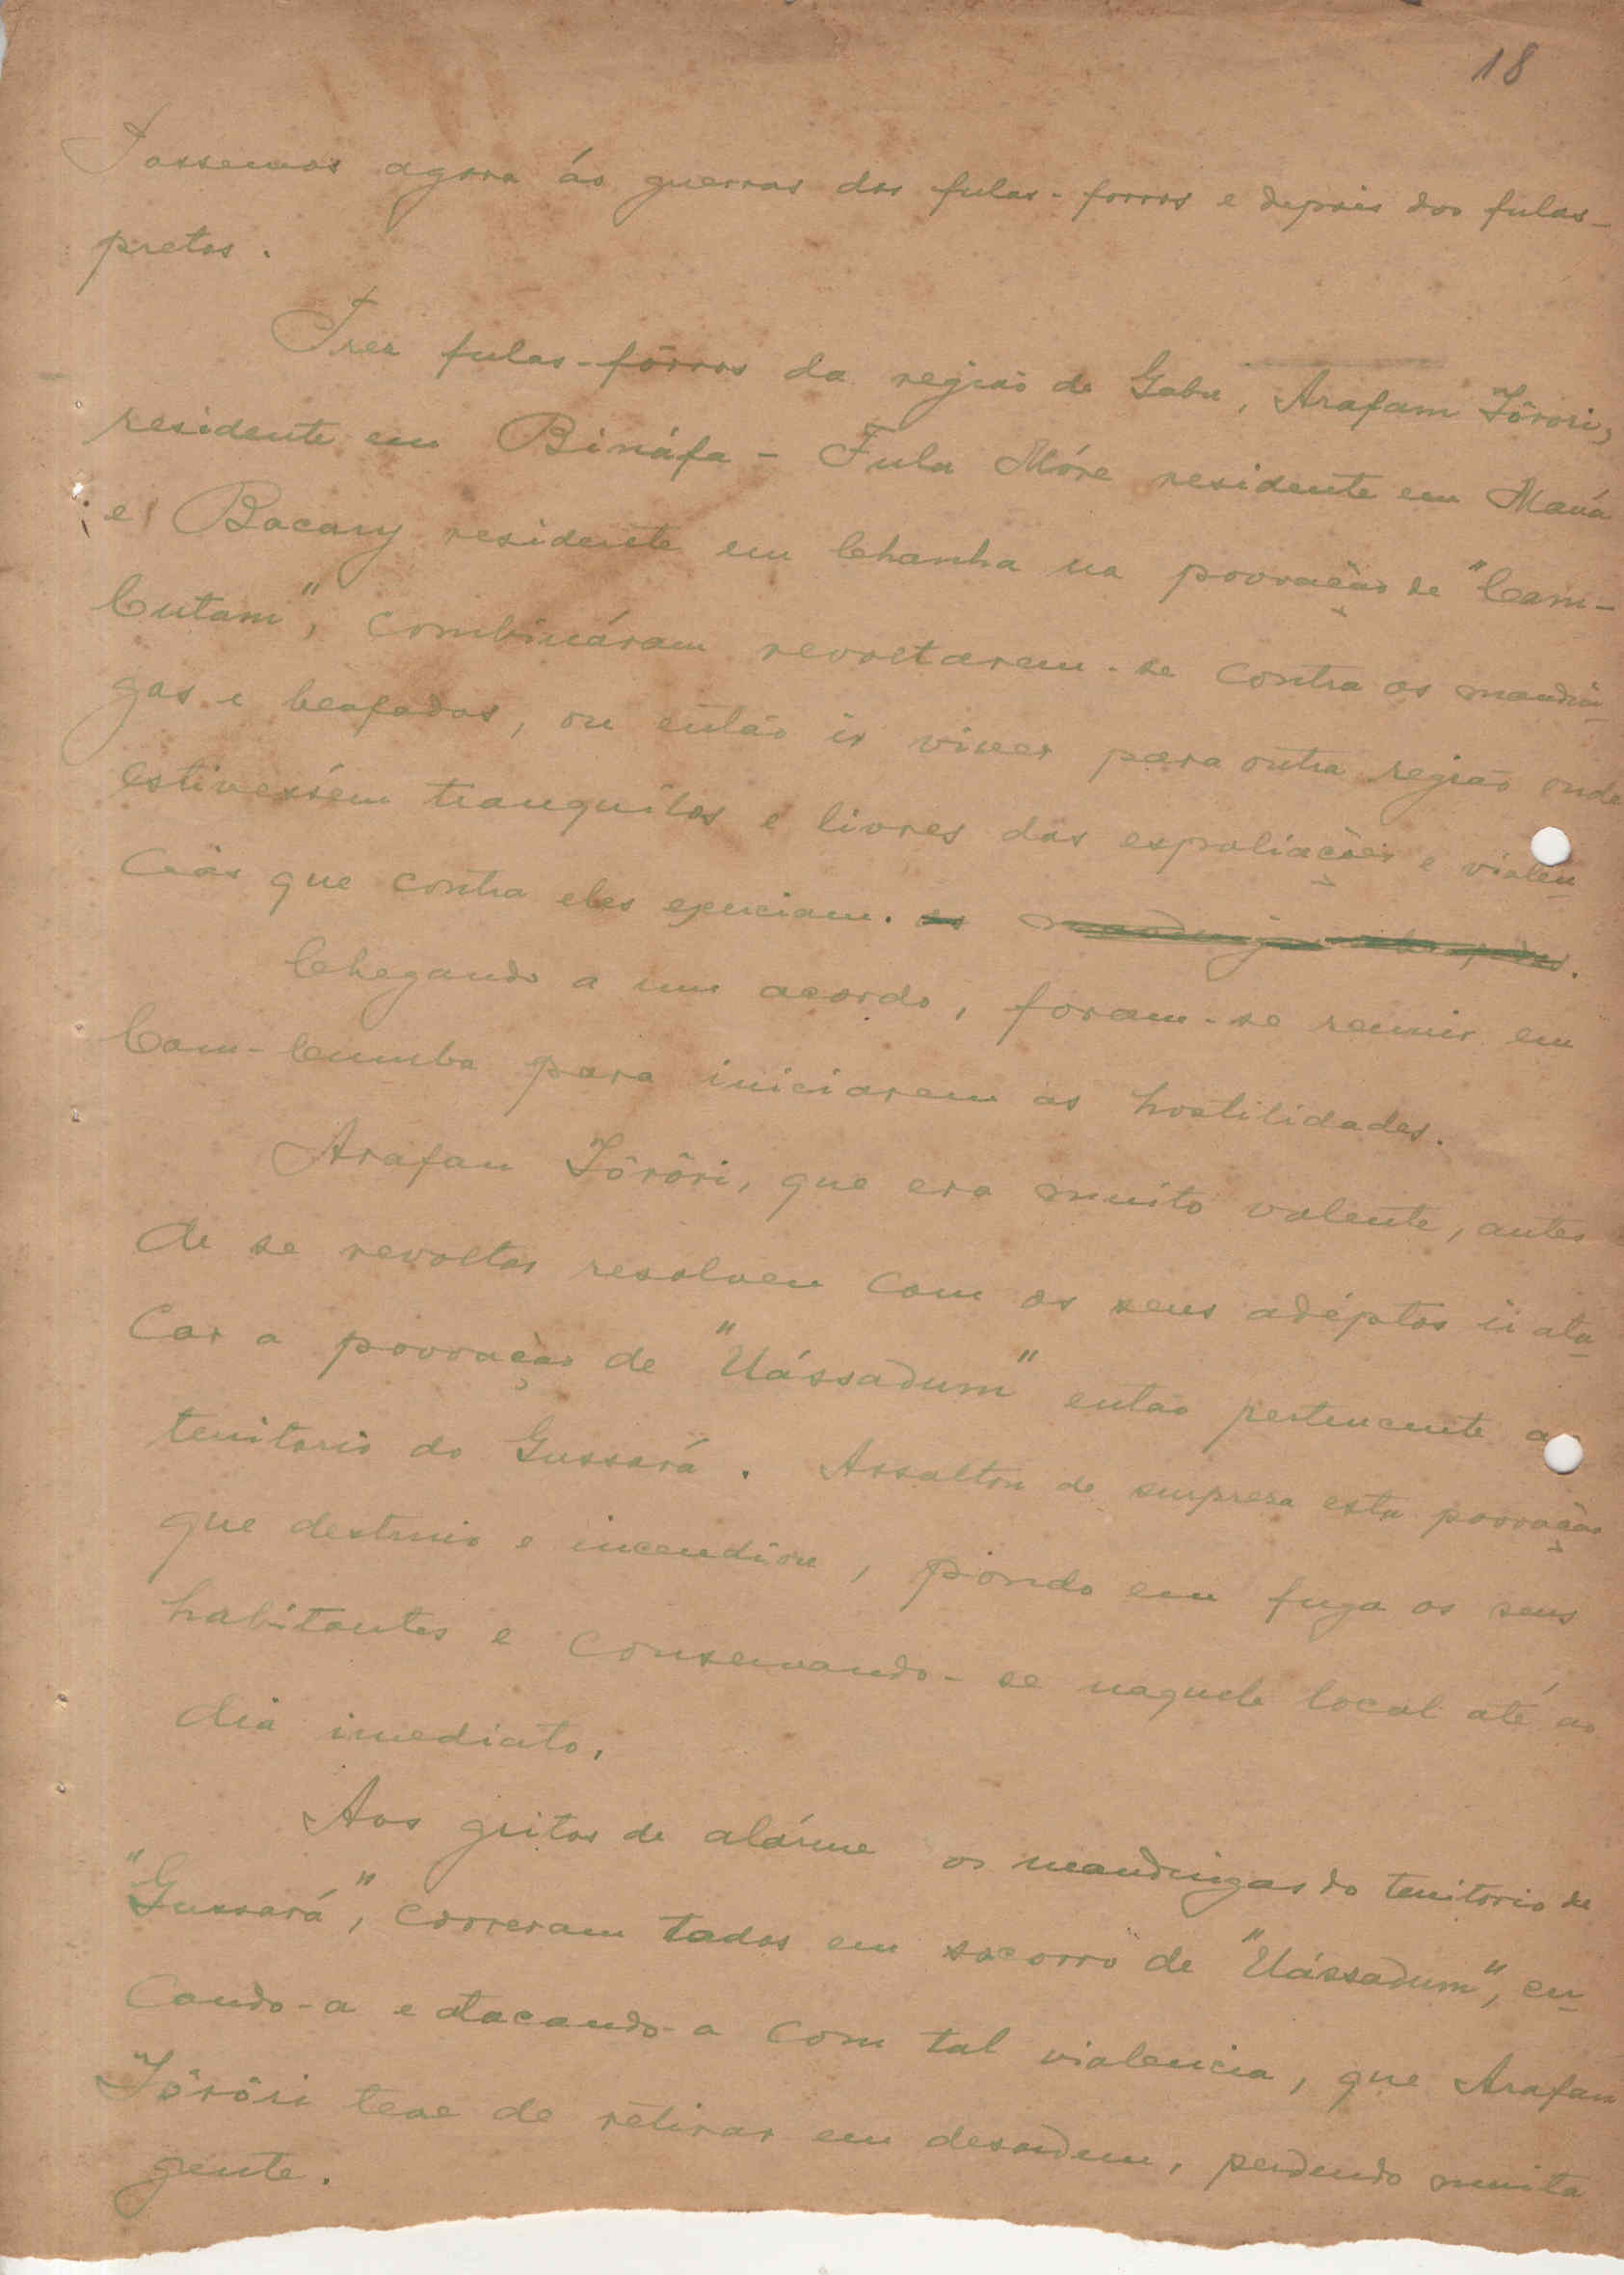 18
Passemos agora ás guerras dos fulas-forros e depois dos fulas-
pretos.
Tres fulas-fôrros da região de Gabu, Arafam Jôrori,
residente em Bináfa - Fula Móre residente em Maná
e Bacary residente em Chanha na povoação de "Cam-
Cutam", combináram revoltarem-se contra os mandin-
gas e beafadas, ou então ir viver para outra região onde
estivessém tranquilos e livres das espoliações e violen-
cias que contra eles exerciam. os mandingas
Chegando a um acordo, foram-se reunir em
Cam-Cumba para iniciarem as hostilidades.
Arafan Jôrôri, que era muito valente, antes
de se revoltar resolveu com os seus adéptos ir ata-
car a povoação de "Uássadum" então pertencente ao
territorio do Gussará. Assaltou de surpresa esta povoação
que destruio e incendiou, pondo em fuga os seus
habitantes e conservando-se naquele local até ao
dia imediato.
Aos gritos de alárme os mandingas do territorio de
"Gussará", correram todos em socorro de "Uássadum", cer-
cando-a e atacando-a com tal violencia, que Arafam
Jôrôri teve de retirar em desordem, perdendo muita
gente.